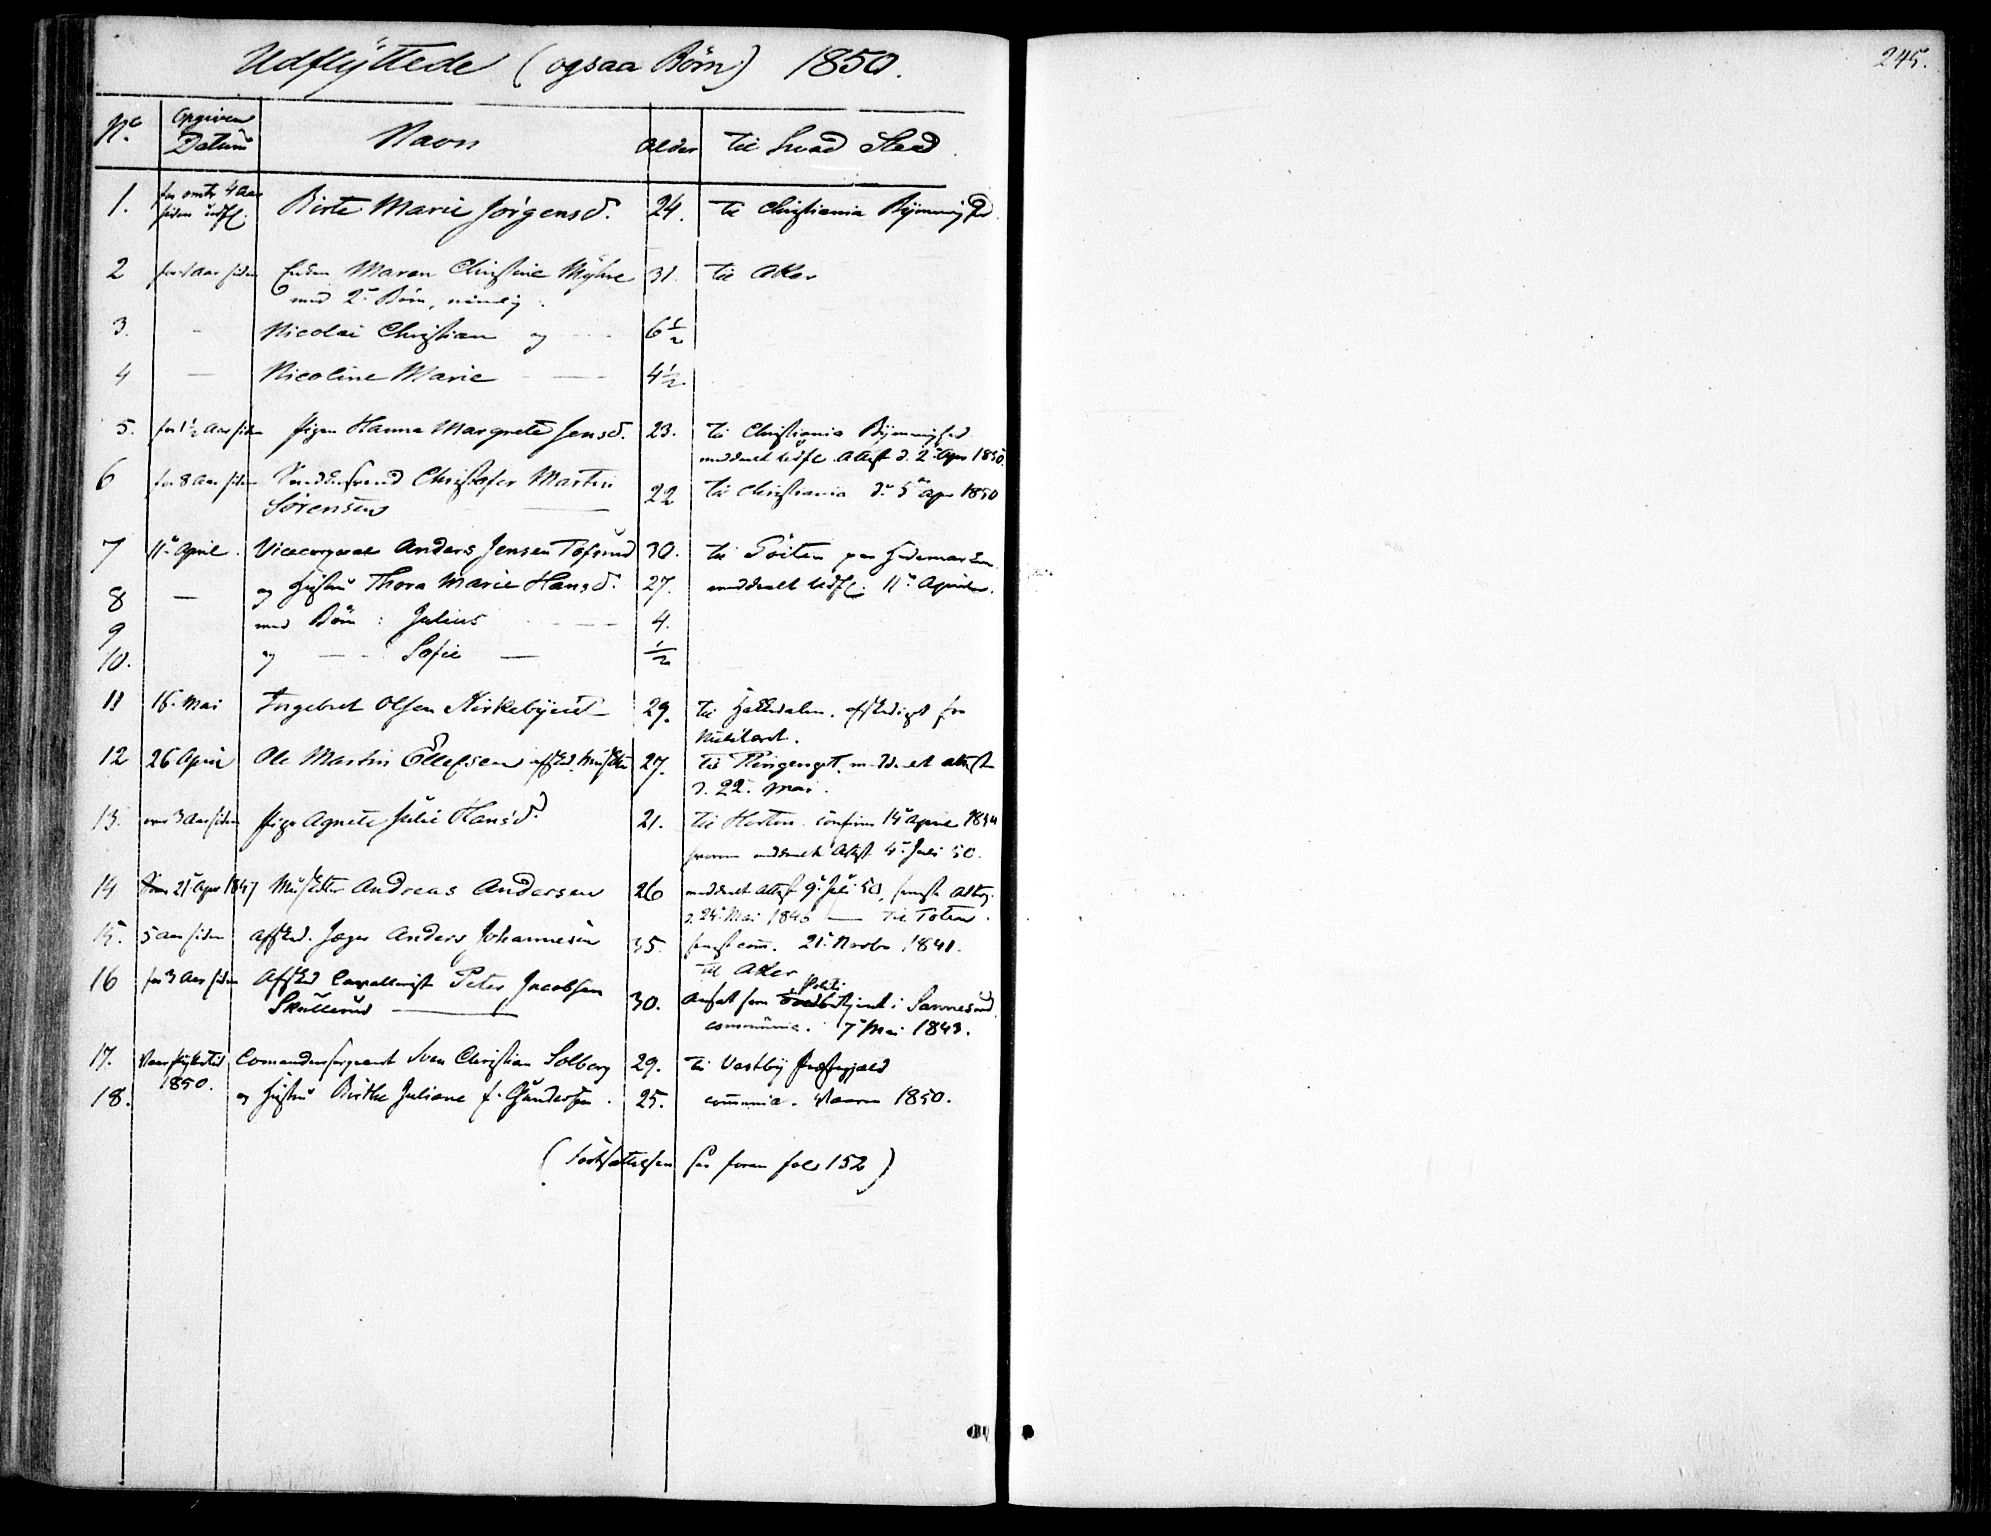 Udflÿttede (ogsaa Børn) 1850.
245.
No. Opgiven Datum Navn Alder til hvad Sted
1. for omtr 4 Aar siden udfl. Birte Marie Jørgensd. 24. til Christiania
2 for 1 Aar siden Enken Maren Christine Myhre 31. til Aker
med 2 Børn, nemlig
3. - Nicolai Christian og 6 1/2
4 - Nicoline Marie 4 1/2
5. for 1 1/2 Aar siden Pigen Hanna Margrete Jensd. 23. til Christiania
meddeelt Udfl. Attest d. 2 Apr 1850.
6 for 8 Aar siden Christofer Martin
Sørensen 22 til Christiania d. 5 Apr 1850
7 11 April. Vicecorporal Anders Jensen Tofsrud 30. til paa Hedemarken
8 — og Hustru Thora Marie Hansd. 27. meddeelt Udfl. 11 April
9 med Børn: Julius 4.
10. og — Sofie — 1/2
11 16 Mai Ingebret Olsen Kirkebÿeiet 29. til afskediget fra
12 26 April Ole Martin Ellefsen afsked. 27. til meddeelt attest
d. 22 Mai.
13. over 3 Aar siden Pige Agnete Julie Hansd. 21. til Horten confirm 14 April
meddeelt Attest 4 Juli 50.
14 21 Apr 1847 Andreas Andersen 26 meddeelt Attest 9 Juli 50,
d. 24 Mai 1846 — til Toten.
15. 5 Aar siden afsked. Jæger Anders Johannesen 35. com. 21 Novbr 1841.
til Aker
16 for 3 Aar siden Afsked Cavallerist Peter Jacobsen
Skullerud — 30. Ansat som Politi betjent i Sannesund
7 Mai 1843.
17. 1850. Comandersergeant Sven Christian Solberg 29. til Vestby Præstegjeld
18. og Hustru Birthe Juliane f. Gundersen. 25. Vaaren 1850.
(Fortsættelsen see foran fol. 152)